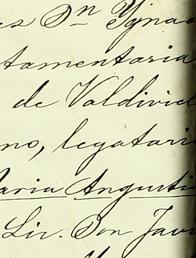 es Dn Ygnac
tamentaria
de Valdivie
no, legatari
aria Angusti
Lic. Don Javi